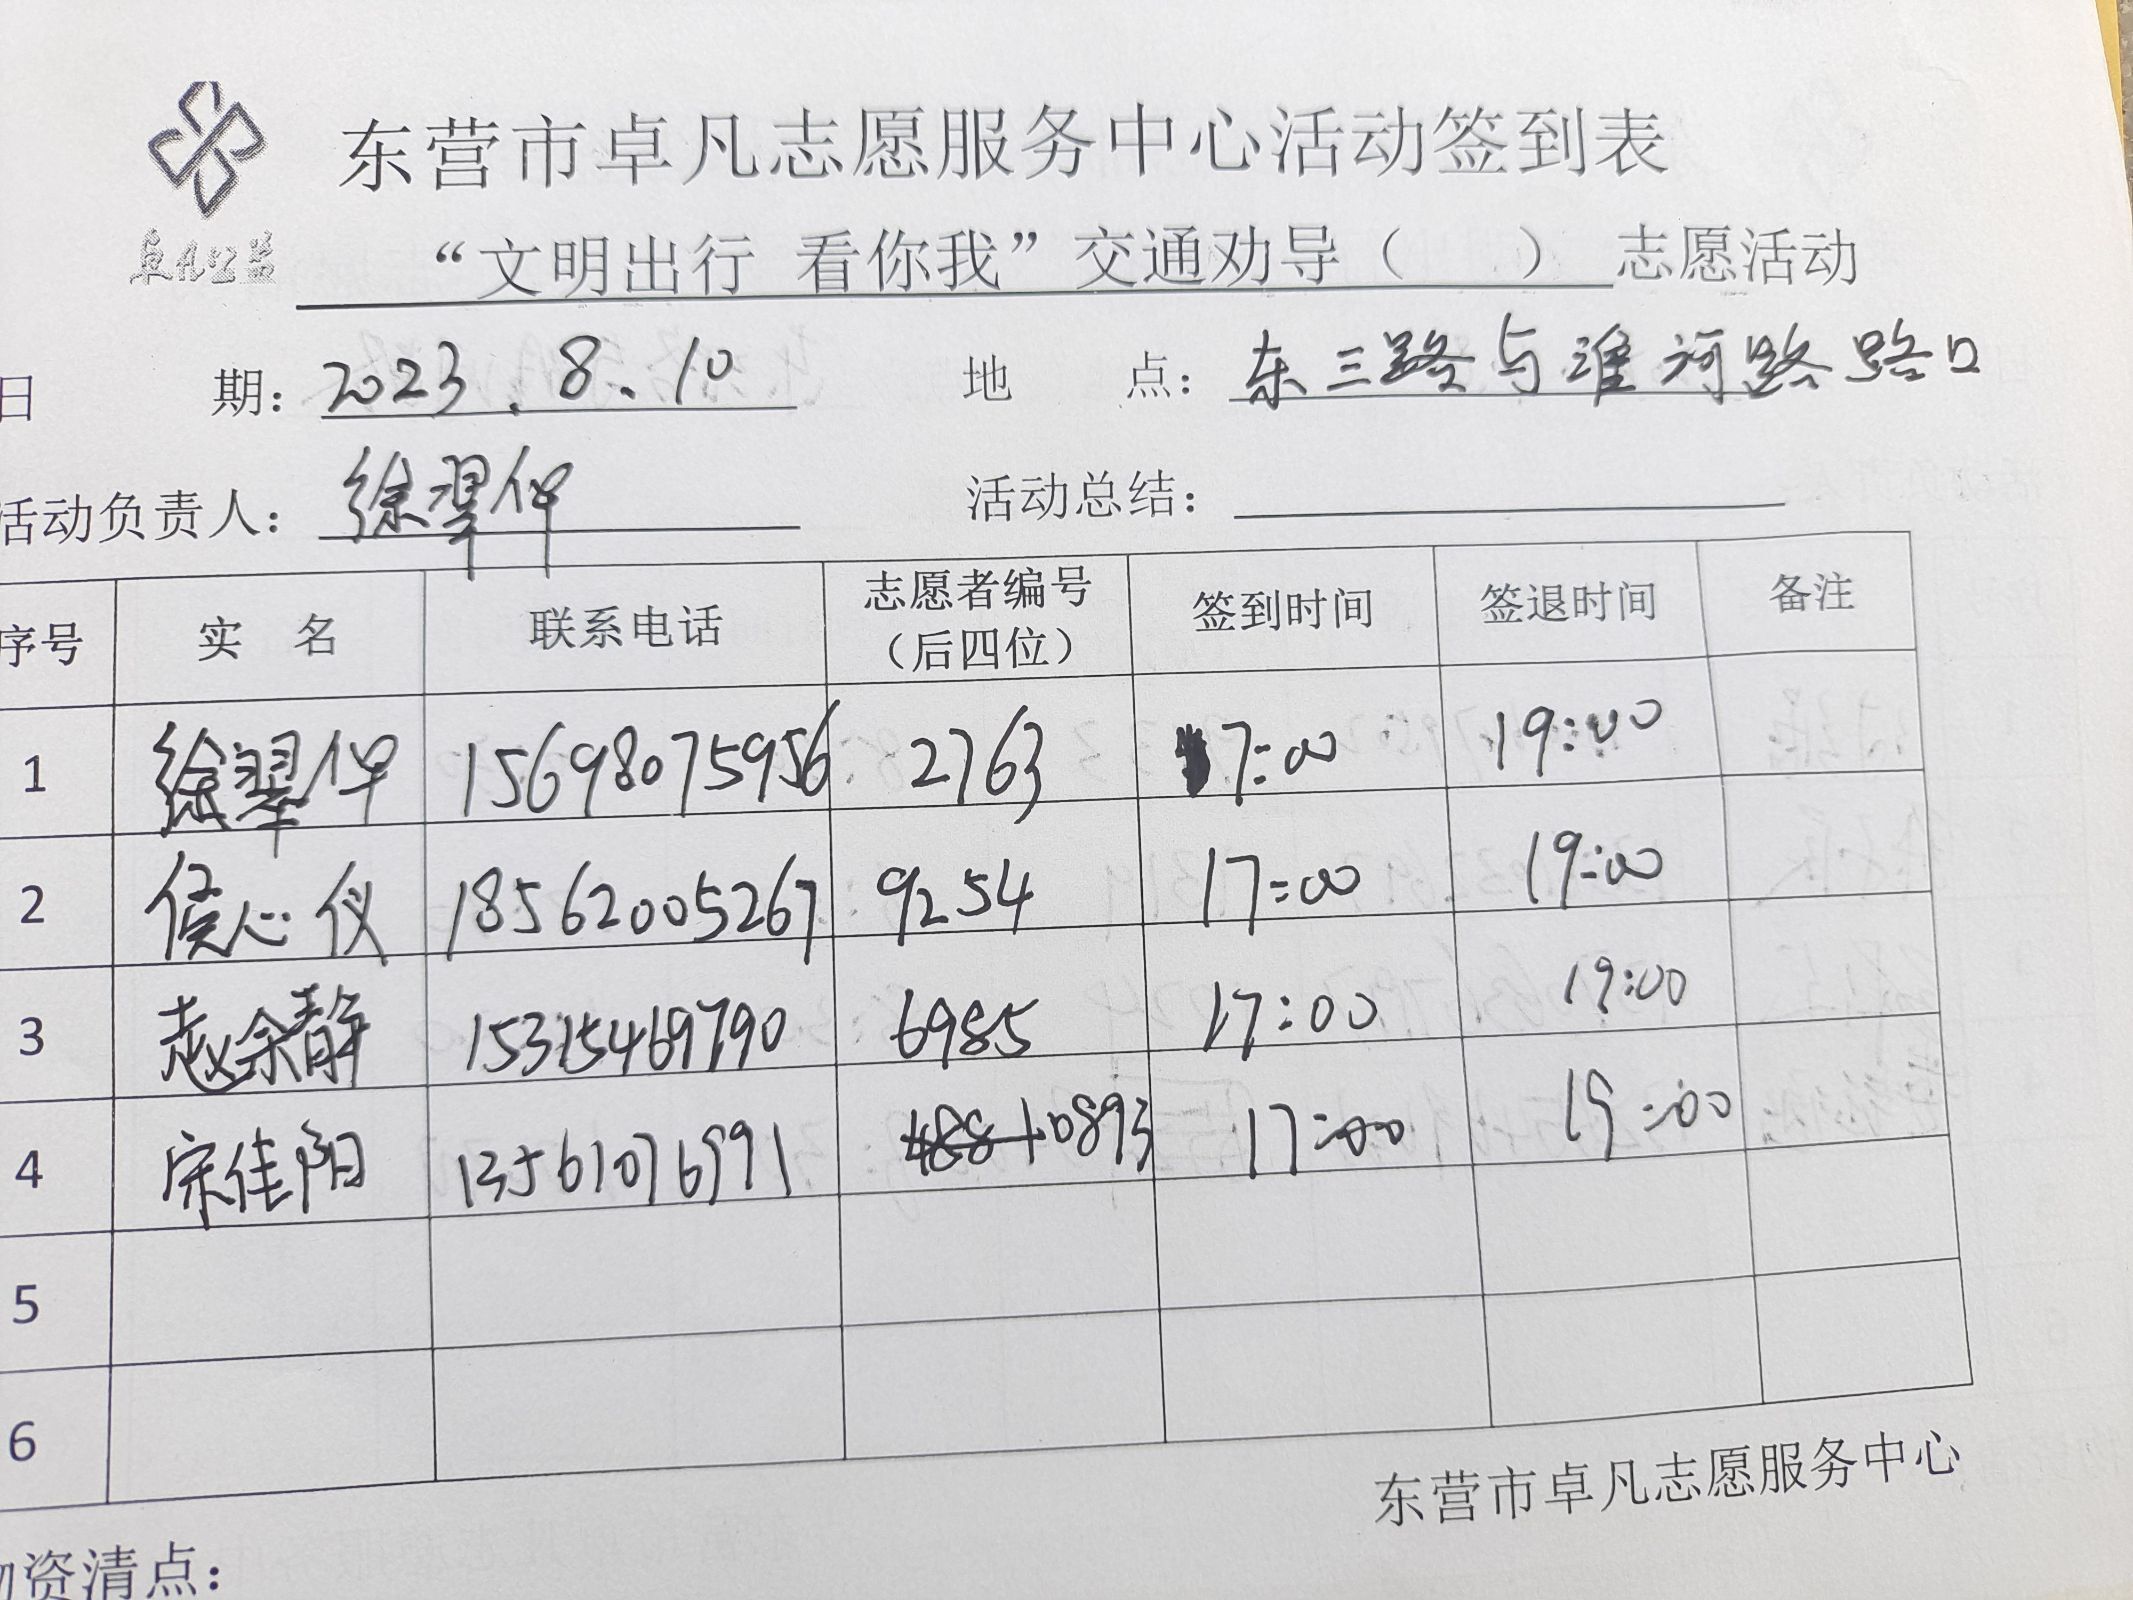 东营市卓凡志愿服务中心活动签到表
卓凡公益
“文明出行 看你我”交通劝导（ ）志愿活动
日 期：2023.8.10 地 点：东三路与淮河路路口
活动负责人：徐翠伊 活动总结：
序号 实 名 联系电话 志愿者编号（后四位） 签到时间 签退时间 备注
1 徐翠伊 15698075956 2763 17:00 19:00
2 侯心仪 18562005267 9254 17:00 19:00
3 赵余静 15315469790 6985 17:00 19:00
4 宋佳阳 13561076991 0893 17:00 19:00
5
6
东营市卓凡志愿服务中心
物资清点：